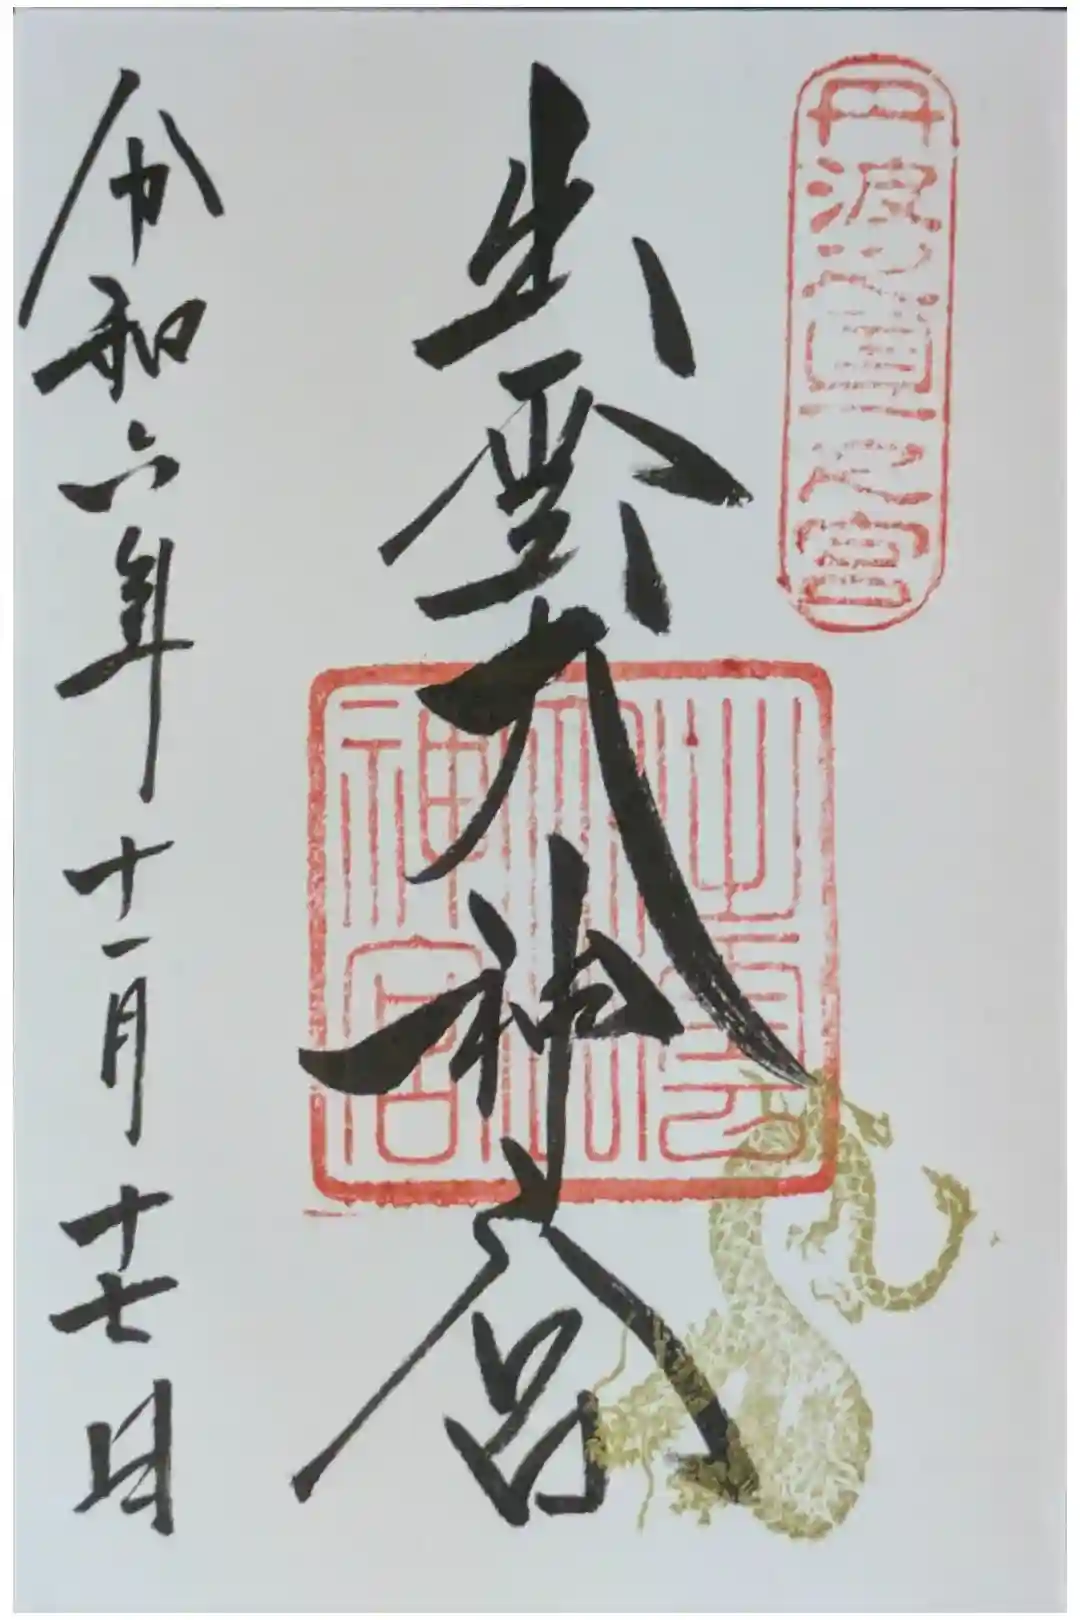 丹波之国一之宮
出雲大神宮
出雲大神宮
令和六年十一月十七日